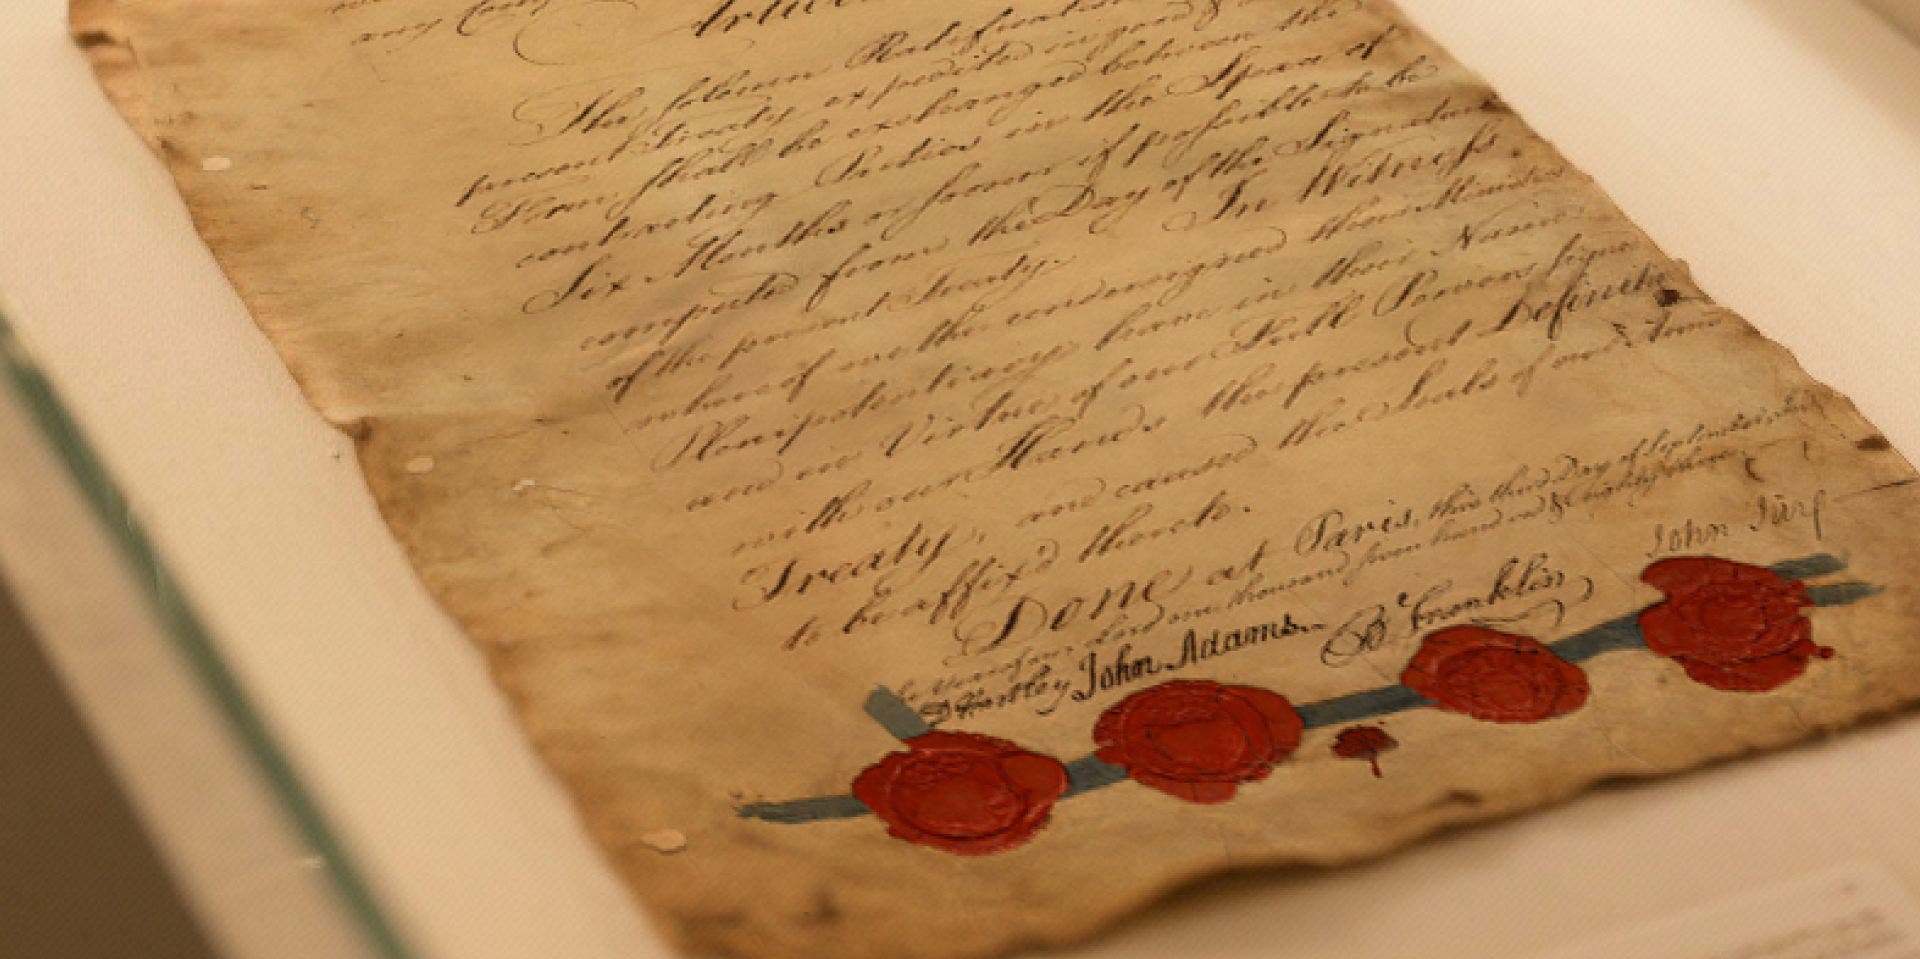 any
Article
The solemn Ratifications
present Treaty expedited in good &
Form shall be exchanged between the
contracting Parties in the Space of
Six Months or sooner if possible to be
computed from the Day of the Signature
of the present Treaty. In Witness
whereof we the undersigned their Ministers
Plenipotentiary have in their Name
and in Virtue of our Full Powers signed
with our Hands the present Definitive
Treaty, and caused the Seals of our Arms
to be affix'd thereto.
Done at Paris, this third Day of September
Lord one thousand seven hundred & eighty three
D Hartley John Adams B Franklin John Jay